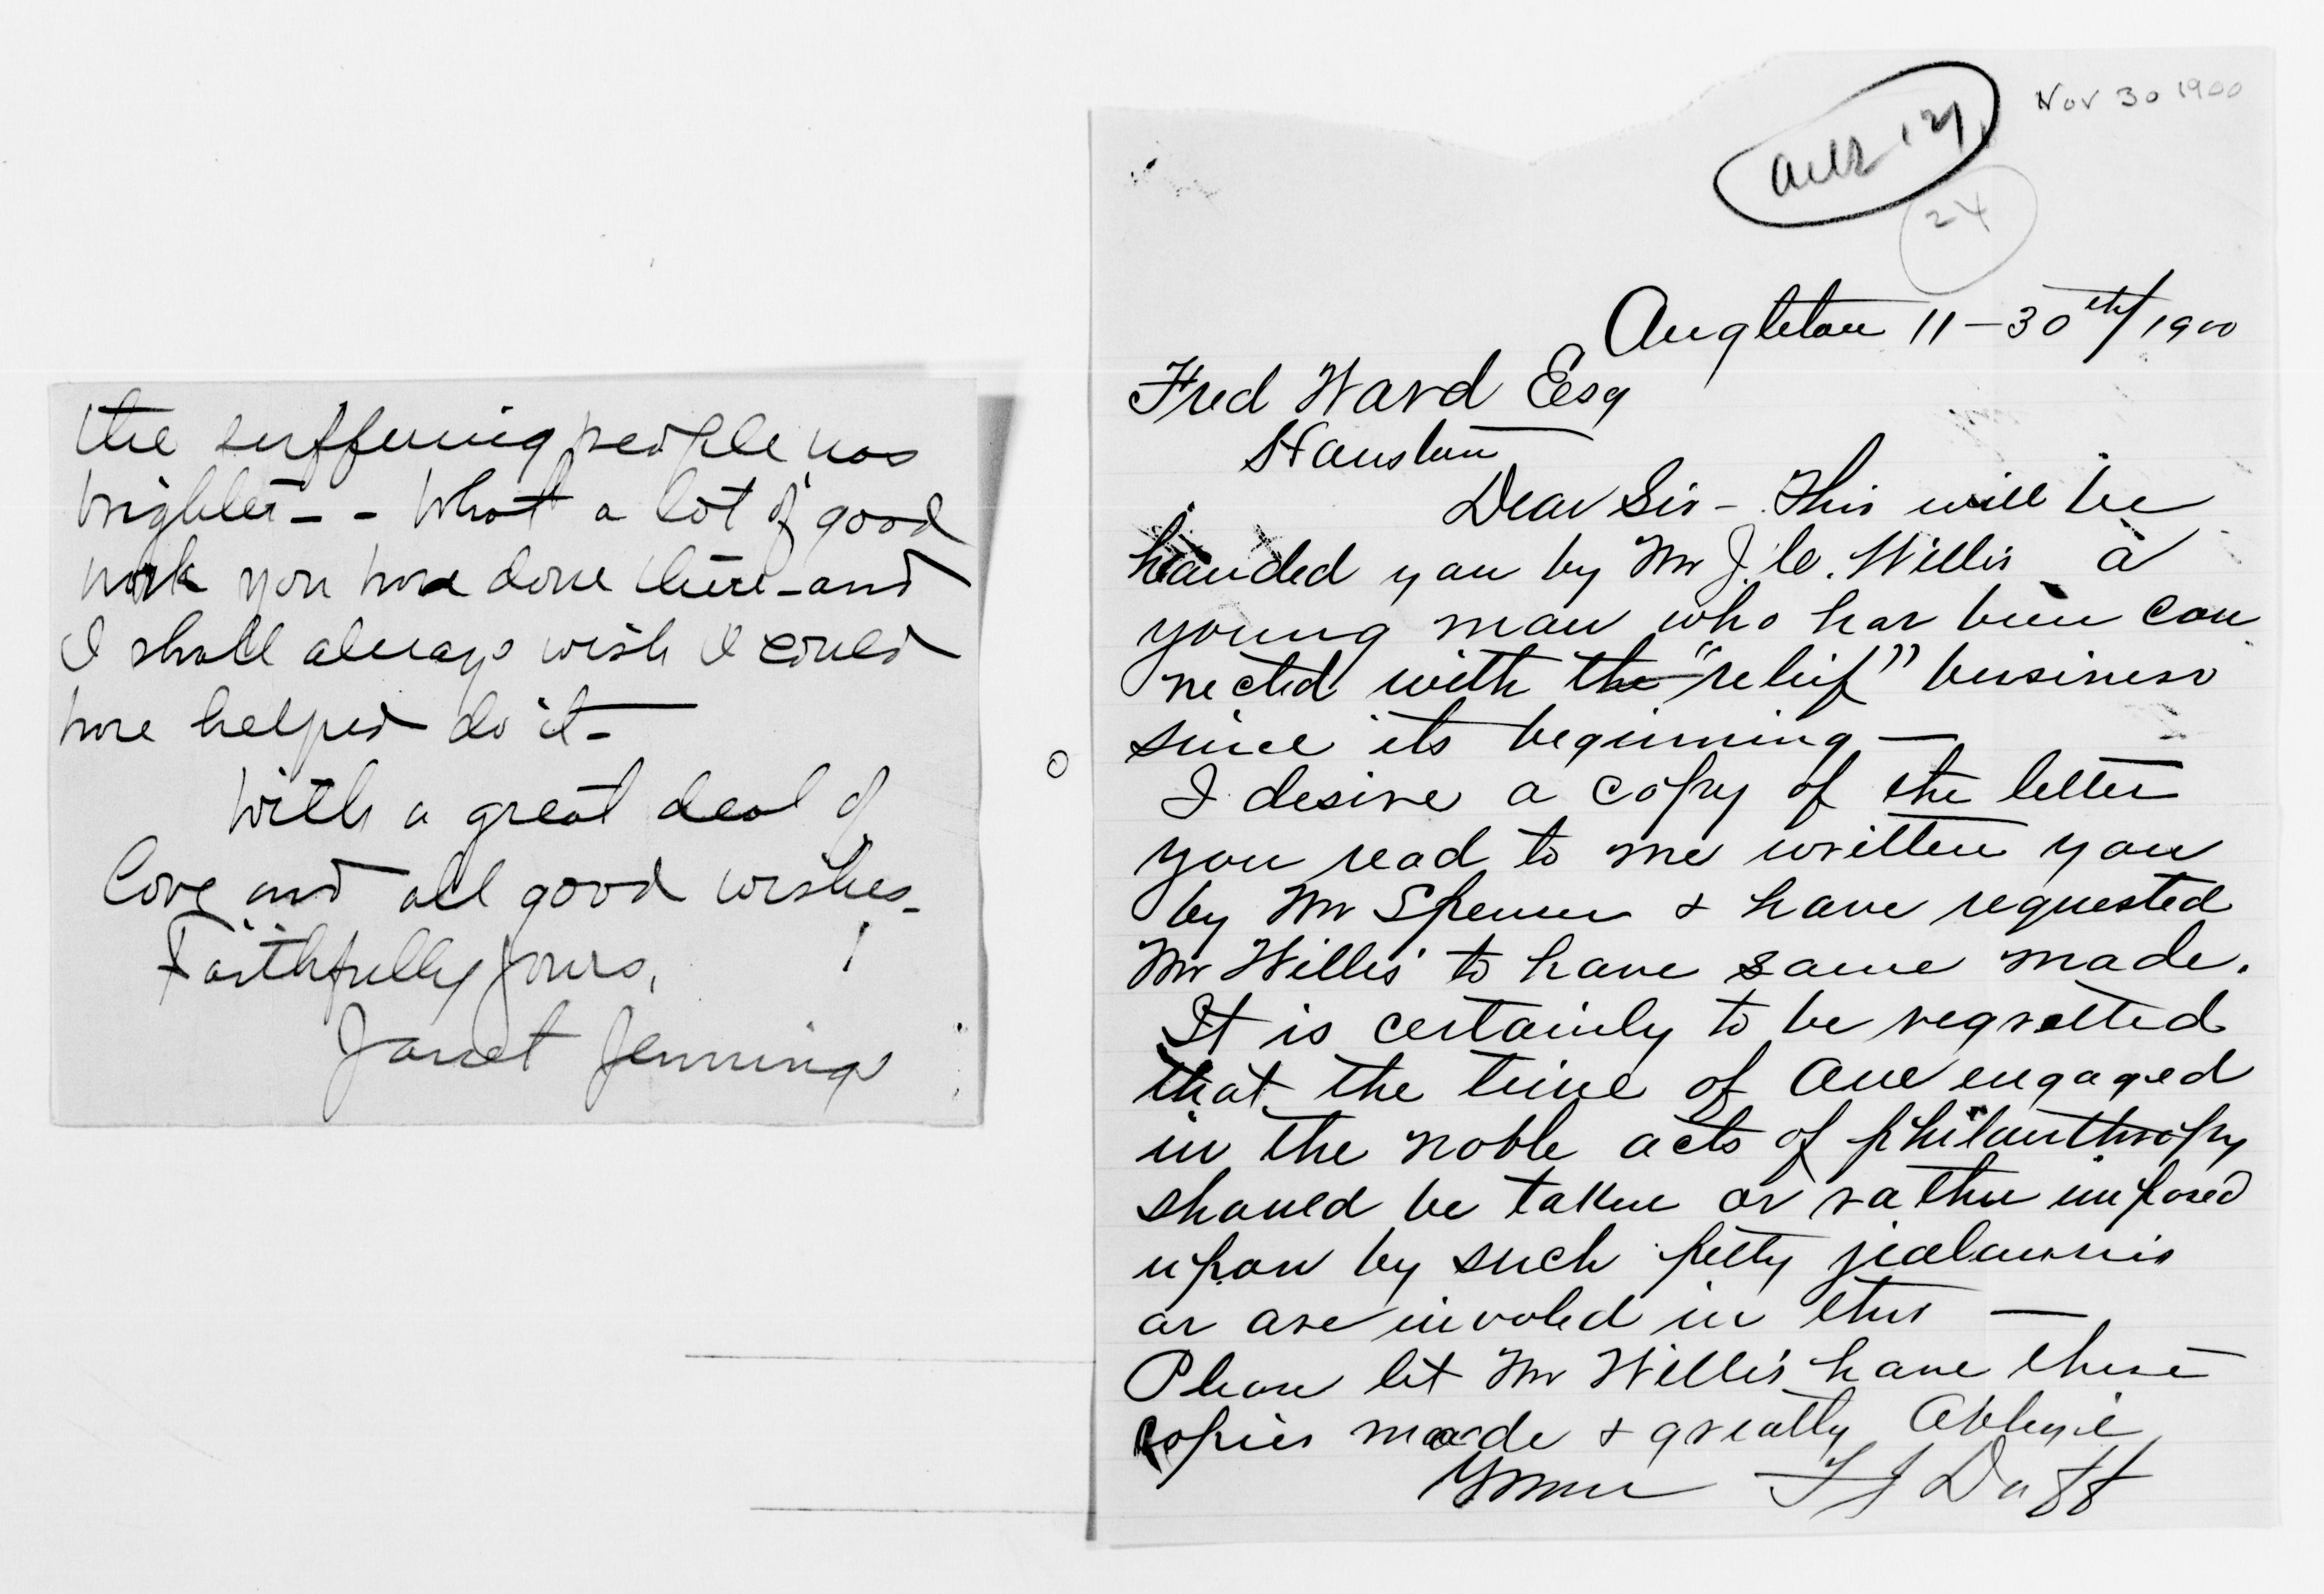 the suffering people was
brighter - - What a lot of good
work you have done there - and
I shall always wish I could
have helped do it -
With a great deal of
love and all good wishes -
Faithfully yours,
Janet Jennings
Nov 30 1900
24
Angleton 11-30th/1900
Fred Ward Esq
Houston
Dear Sir - This will be
handed you by Mr J. C. Willis a
young man who has been con
nected with the "relief" business
since its beginning -
I desire a copy of the letter
you read to me written you
by Mr Spencer & have requested
Mr Willis to have same made.
It is certainly to be regretted
that the time of one engaged
in the noble acts of philanthropy
should be taken or rather imposed
upon by such petty jealousies
as are involed in this -
Please let Mr Willis have these
copies made & greatly oblige
Yours